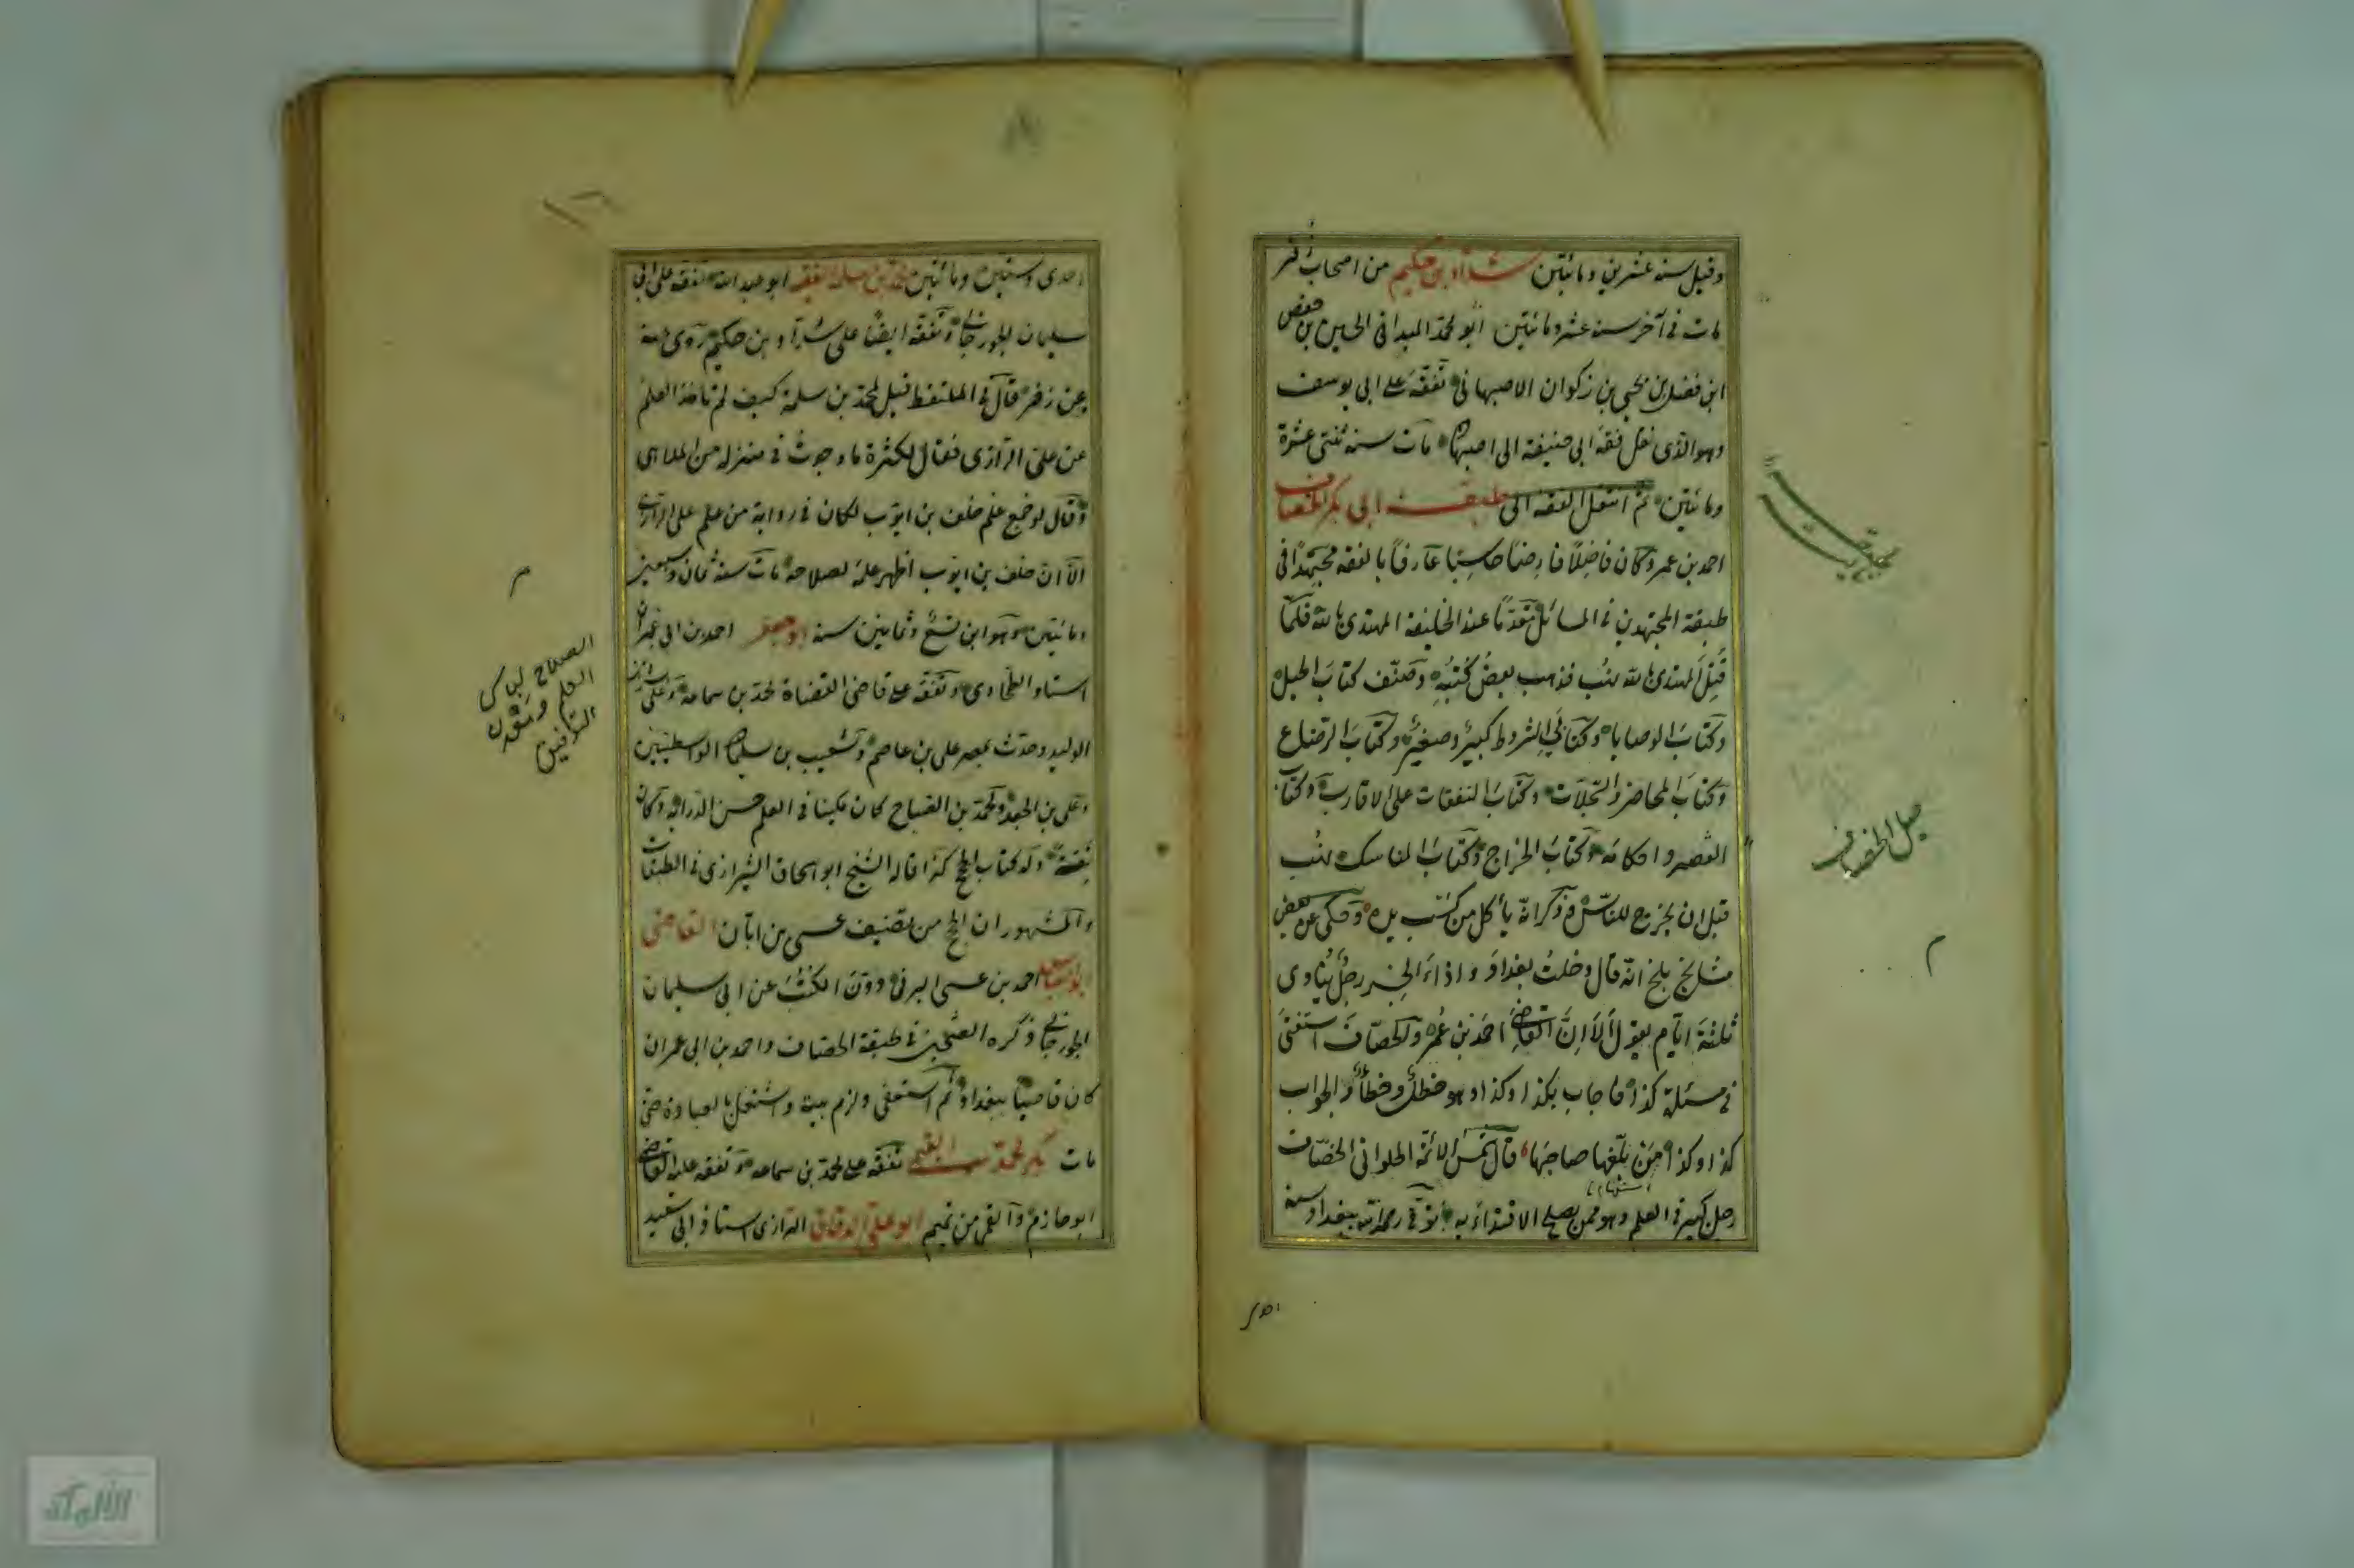 وقيل سنة عشرين ومائتين شداد بن حكيم من اصحاب زفر
مات في آخر سنة عشر ومائتين ابو محمد الميداني الحسين بن حفص
ابن فضل بن يحيى بن زكوان الاصبهاني تفقه على ابي يوسف
وهو الذي نقل فقه ابي حنيفة الى اصبهان مات سنة ثنتي عشرة
ومائتين ثم انتقل الفقه الى طبقة ابي بكر الخصاف
احمد بن عمر وكان فاضلا فارضا حاسبا عارفا بالفقه مجتهدا في
طبقة المجتهدين في المسائل مقدما عند الخليفة المهتدي بالله فلما
قتل المهتدي بالله نهب فذهب بعض كتبه وصنف كتاب الحيل
وكتاب الوصايا وكتابي الشروط كبير وصغير وكتاب الرضاع
وكتاب المحاضر والسجلات وكتاب النفقات على الاقارب وكتاب
العصير واحكامه وكتاب الخراج وكتاب المناسك نهب
قبل ان يخرج للناس وذكر انه يأكل من كسب يده وحكي عن بعض
مشايخ بلخ انه قال دخلت بغداد واذا على الجسر رجل ينادي
ثلثة ايام يقول ألا إن القاضي احمد بن عمر والخصاف استفتي
في مسئلة كذا فاجاب بكذا وكذا وهو خطأ وخطأ والجواب
كذا وكذا من بلغها صاحبها قال شمس الائمة الحلواني الخصاف
رجل كبير في العلم وهو ممن يصلح الاقتداء به توفي رحمه الله ببغداد سنة
حيل الخصاف
احدى وستين ومائتين محمد بن سلمة الفقيه ابو عبد الله تفقه على ابي
سليمان الجوزجاني وتفقه ايضا على شداد بن حكيم روى عنه
عن زفر قال في الملتقط قيل لمحمد بن سلمة كيف لم تأخذ العلم
عن علي الرازي فقال لكثرة ما وجدت في منزله من الملاهي
وقال لو جمع علم خلف بن ايوب لكان في رواية من علم علي الرازي
الا ان خلف بن ايوب اظهر علمه لصلاحه مات سنة ثمان وسبعين
ومائتين وهو ابن تسع وثمانين سنة ابو جعفر احمد بن ابي عمران
استاد الطحاوي وتفقه على قاضي القضاة محمد بن سماعة وعلى بشر بن
الوليد وحدث بمصر على بن عاصم وشعيب بن سليمان الواسطيين
وعلي بن الجعد ومحمد بن الصباح كان مكينا في العلم حسن الدراية وكان
ثقة وله كتاب الحج كذا قاله الشيخ ابو اسحاق الشيرازي في الطبقات
والمشهور ان الحج من تصنيف عيسى بن ابان القاضي
ابو العباس احمد بن عيسى البرني دون الكتب عن ابي سليمان
الجوزجاني ذكره الصيمري في طبقة الخصاف واحمد بن ابي عمران
كان قاضيا ببغداد ثم استعفى ولزم بيته واشتغل بالعبادة حتى
مات بكر محمد بن القمي تفقه على محمد بن سماعة وتفقه عليه القاضي
ابو حازم والقمي من تميم ابو علي الدقاق الرازي استاذ ابي سعيد
الصلاح لباس
العلم
احد